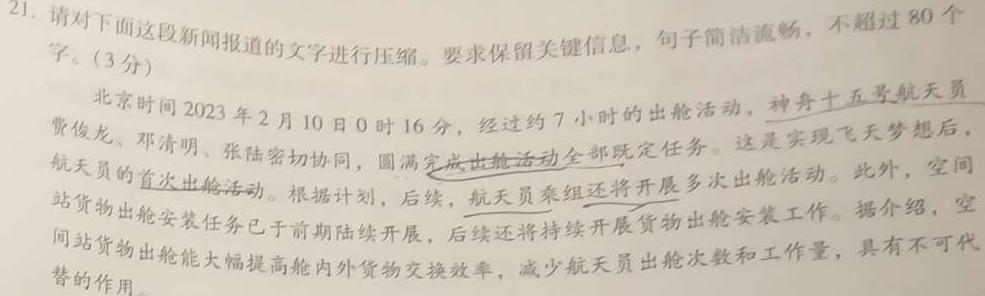 21. 请对下面这段新闻报道的文字进行压缩。要求保留关键信息，句子简洁流畅，不超过 80 个
字。(3 分)
北京时间 2023 年 2 月 10 日 0 时 16 分，经过约 7 小时的出舱活动，神舟十五号航天员
费俊龙、邓清明、张陆密切协同，圆满完成出舱活动全部既定任务。这是实现飞天梦想后，
航天员的首次出舱活动。根据计划，后续，航天员乘组还将开展多次出舱活动。此外，空间
站货物出舱安装任务已于前期陆续开展，后续还将持续开展货物出舱安装工作。据介绍，空
间站货物出舱能大幅提高舱内外货物交换效率，减少航天员出舱次数和工作量，具有不可代
替的作用。